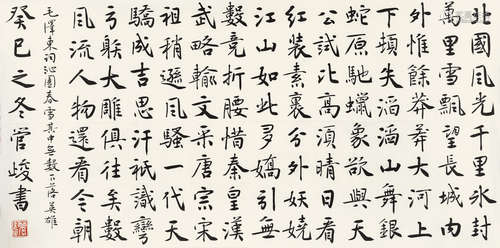 北國風光千里冰封
萬里雪飄望長城內
外惟餘莽莽大河上
下頓失滔滔山舞銀
蛇原馳蠟象欲與天
公試比高須晴日看
紅裝素裹分外妖嬈
江山如此多嬌引無
數競折腰惜秦皇漢
武略輸文采唐宗宋
祖稍遜風騷一代天
驕成吉思汗祇識彎
弓䠶大雕俱往矣數
風流人物還看今朝
毛澤東詞沁園春雪其中無數下落英雄
癸巳之冬管峻書